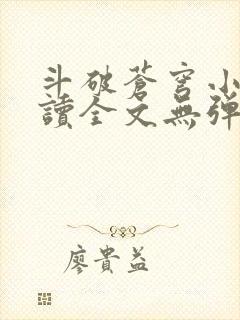 斗破蒼穹小
讀全文無彈
廖貴益